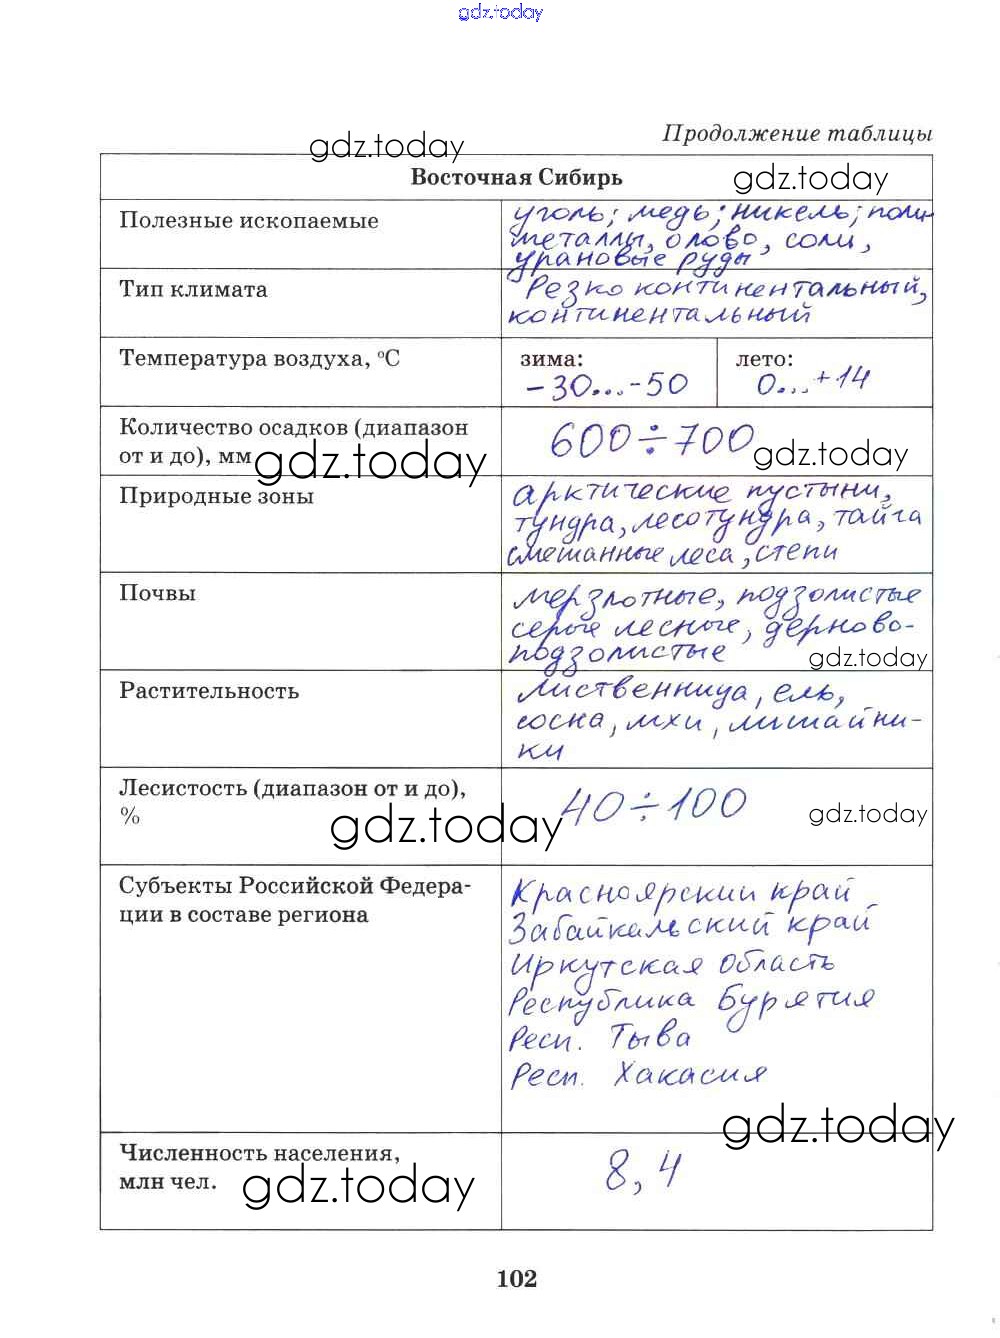 gdz.today
Продолжение таблицы
gdz.today
Восточная Сибирь
gdz.today
Полезные ископаемые
уголь; медь; никель; поли-
металлы, олово, соли,
урановые руды
Тип климата
Резко континентальный,
континентальный
Температура воздуха, °С
зима:
-30...-50
лето:
0...+14
Количество осадков (диапазон
от и до), мм
gdz.today
600÷700
gdz.today
Природные зоны
арктические пустыни,
тундра, лесотундра, тайга
смешанные леса, степи
Почвы
мерзлотные, подзолистые
серые лесные, дерново-
подзолистые
gdz.today
Растительность
лиственница, ель,
сосна, мхи, лишайни-
ки
Лесистость (диапазон от и до),
%
gdz.today
40÷100
gdz.today
Субъекты Российской Федера-
ции в составе региона
Красноярский край
Забайкальский край
Иркутская область
Республика Бурятия
Респ. Тыва
Респ. Хакасия
gdz.today
Численность населения,
млн чел.
gdz.today
8,4
102